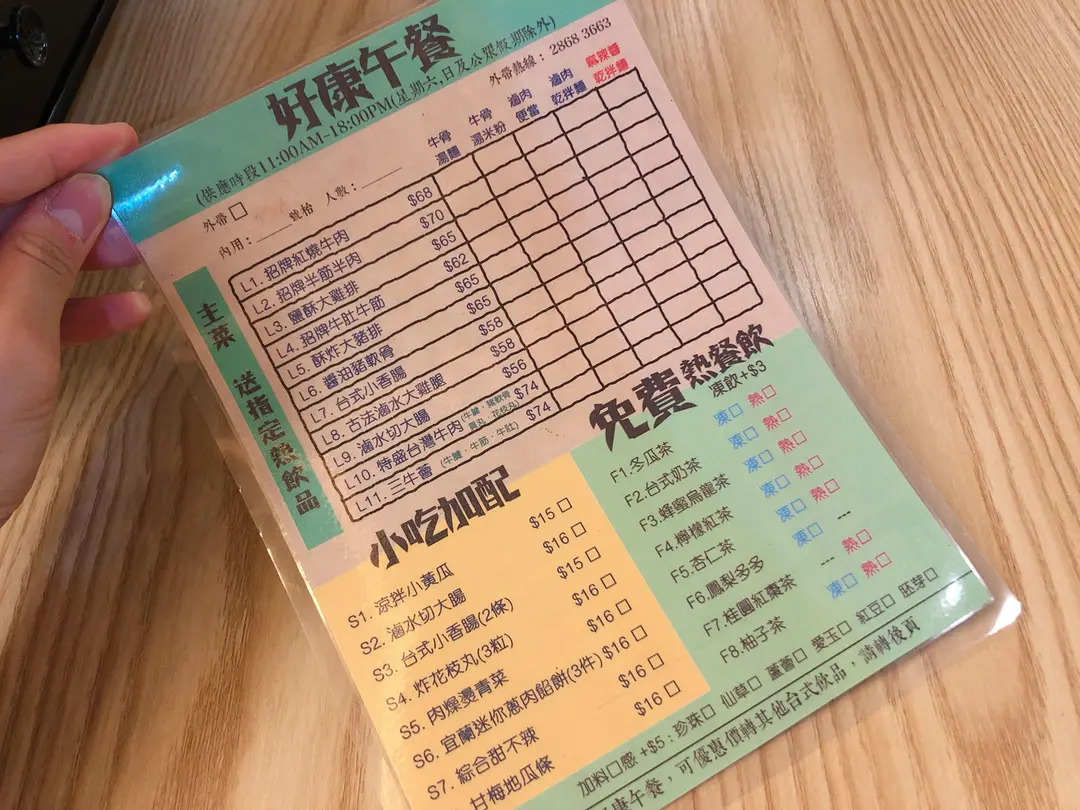 好康午餐
(供應時段11:00AM-18:00PM(星期六,日及公眾假期除外)
外帶□
外帶熱線：2868 3663
內用：_____號枱 人數：_____
牛骨湯麵
牛骨湯米粉
滷肉便當
滷肉乾拌麵
麻辣醬乾拌麵
主菜 送指定熱飲品
L1. 招牌紅燒牛肉 $68
L2. 招牌半筋半肉 $70
L3. 鹽酥大雞排 $65
L4. 招牌牛肚牛筋 $62
L5. 酥炸大豬排 $65
L6. 醬油豬軟骨 $65
L7. 台式小香腸 $58
L8. 古法滷水大雞腿 $58
L9. 滷水切大腸 $56
L10. 特盛台灣牛肉 $74
L11. 三牛薈 (牛腱、牛筋、牛肚) $74
小吃加配
S1. 涼拌小黃瓜 $15□
S2. 滷水切大腸 $16□
S3. 台式小香腸(2條) $15□
S4. 炸花枝丸(3粒) $16□
S5. 肉燥燙青菜 $16□
S6. 宜蘭迷你蔥肉餡餅(3件) $16□
S7. 綜合甜不辣 $16□
甘梅地瓜條 $16□
免費熱餐飲
凍飲+$3
F1.冬瓜茶 凍□ 熱□
F2.台式奶茶 凍□ 熱□
F3.蜂蜜烏龍茶 凍□ 熱□
F4.檸檬紅茶 凍□ 熱□
F5.杏仁茶 凍□ 熱□
F6.鳳梨多多 凍□ ---
F7.桂圓紅棗茶 --- 熱□
F8.柚子茶 凍□ 熱□
加料□感 +$5：珍珠□ 仙草□ 蘆薈□ 愛玉□ 紅豆□ 胚芽□
康午餐，可優惠價轉其他台式飲品，請轉後頁